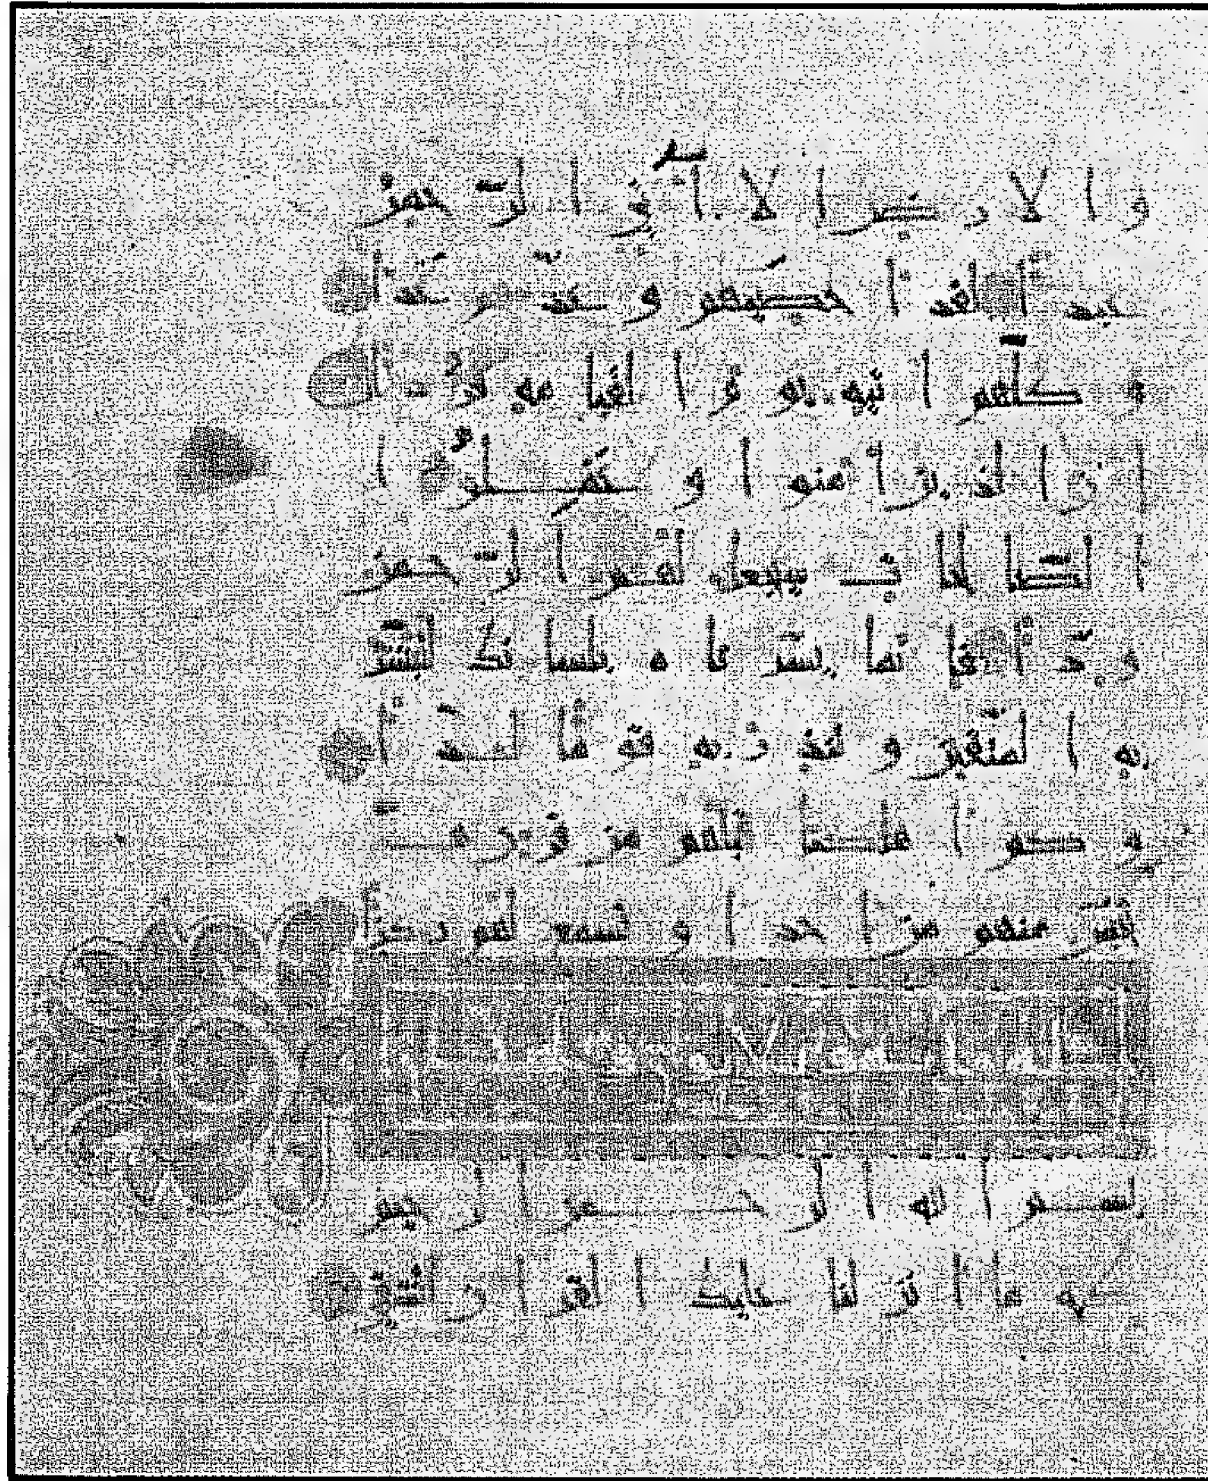 والارض الا اتى الرحمن
عبدا لقد احصيهم وعدهم عدا
وكلهم اتيه يوم القيامه فردا
ان الذين امنوا وعملوا
الصلحات سيجعل لهم الرحمن
ودا فانما يسرناه بلسانك لتبشر
به المتقين وتنذر به قوما لدا
وكم اهلكنا قبلهم من قرن هل
تحس منهم من احد او تسمع لهم ركزا
بسم الله الرحمن الرحيم
طه ما انزلنا عليك القران لتشقى